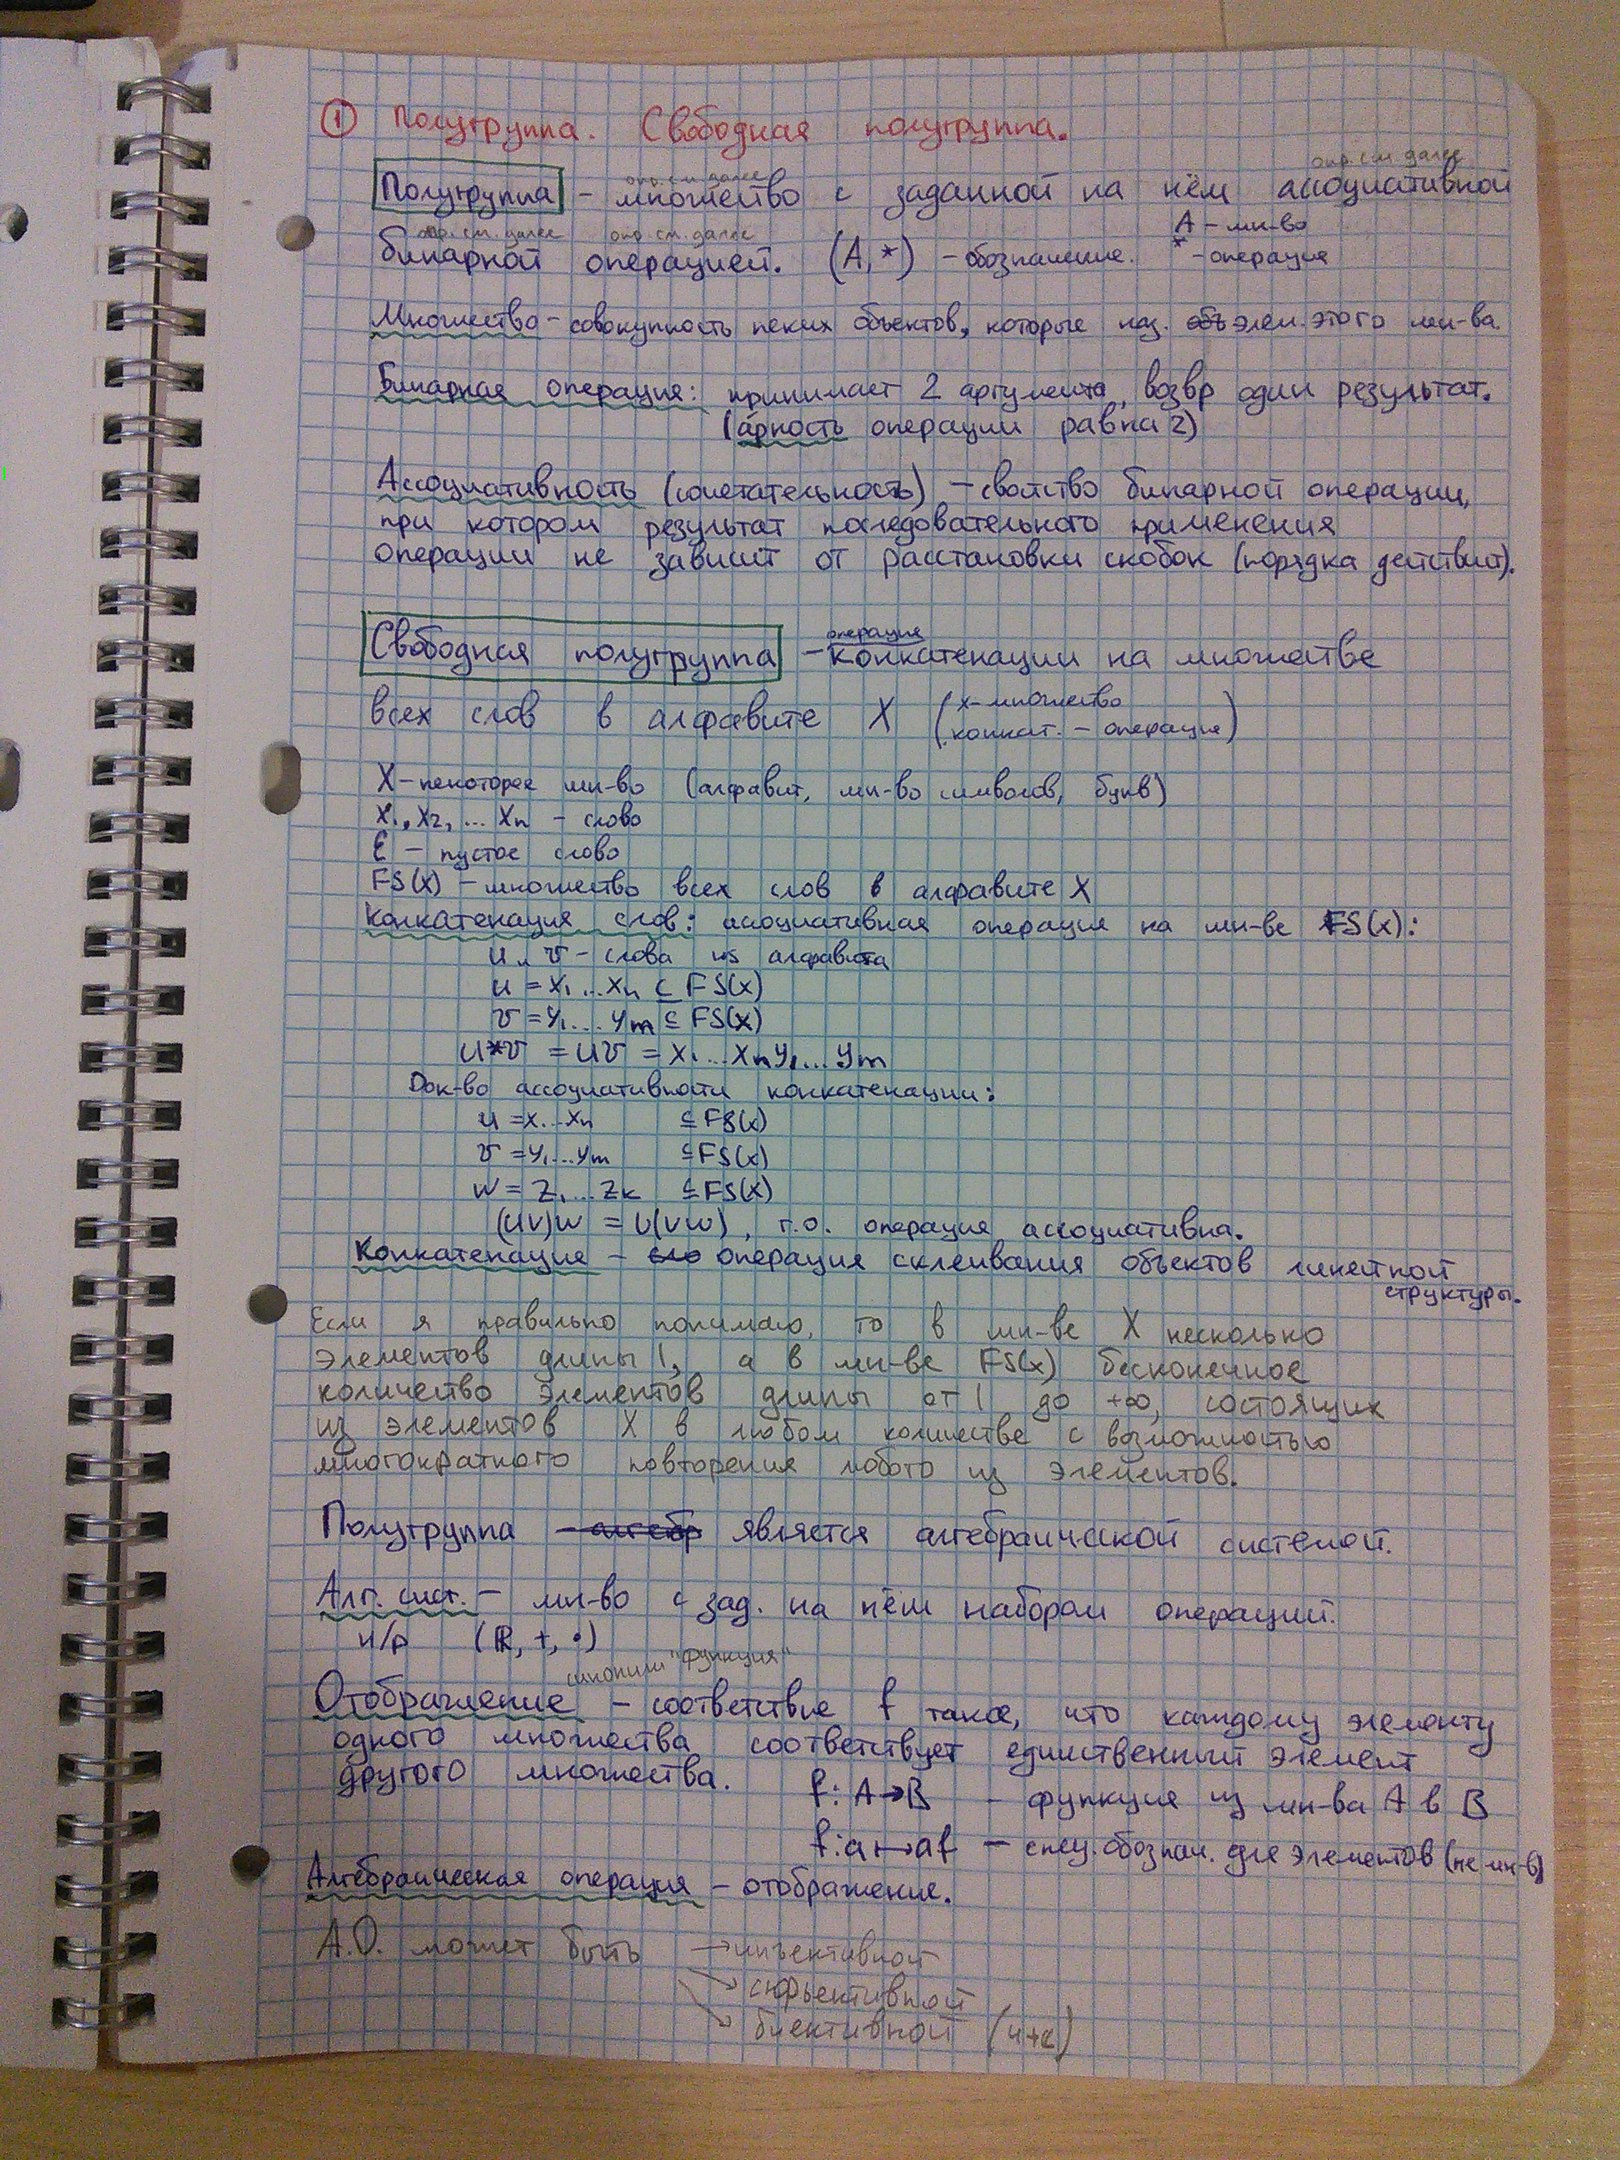 ① Полугруппа. Свободная полугруппа.
опр. см. далее опр. см. далее
Полугруппа – множество с заданной на нём ассоциативной
опр. см. далее опр. см. далее
бинарной операцией. (A, *) – обозначение. A – мн-во
* – операция
Множество – совокупность неких объектов, которые наз. объ элем. этого мн-ва.
Бинарная операция: принимает 2 аргумента, возвр один результат.
(арность операции равна 2)
Ассоциативность (сочетательность) – свойство бинарной операции,
при котором результат последовательного применения
операции не зависит от расстановки скобок (порядка действий).
операция
Свободная полугруппа – конкатенации на множестве
всех слов в алфавите X (x – множество
конкат. – операция)
X – некоторое мн-во (алфавит, мн-во символов, букв)
x₁, x₂, ... xₙ – слово
ε – пустое слово
FS(x) – множество всех слов в алфавите X
Конкатенация слов: ассоциативная операция на мн-ве FS(x):
u, v – слова из алфавита
u = x₁...xₙ ⊆ FS(x)
v = y₁...yₘ ⊆ FS(x)
u*v = uv = x₁...xₙy₁...yₘ
Док-во ассоциативности конкатенации:
u = x...xₙ ⊆ FS(x)
v = y₁...yₘ ⊆ FS(x)
w = z₁...zₖ ⊆ FS(x)
(uv)w = u(vw), т.о. операция ассоциативна.
Конкатенация – сло операция склеивания объектов линейной
структуры.
Если я правильно понимаю, то в мн-ве X несколько
элементов длины 1, а в мн-ве FS(x) бесконечное
количество элементов длины от 1 до +∞, состоящих
из элементов X в любом количестве с возможностью
многократного повторения любого из элементов.
Полугруппа – алгебр является алгебраической системой.
Алг. сист. – мн-во с зад. на нём набором операций.
н/р (ℝ, +, •)
синоним "функция"
Отображение – соответствие f такое, что каждому элементу
одного множества соответствует единственный элемент
другого множества. f: A→B – функция из мн-ва A в B
f: a↦af – спец. обознач. для элементов (не мн-в)
Алгебраическая операция – отображение.
А.О. может быть → инъективной
→ сюръективной
→ биективной (и+с)